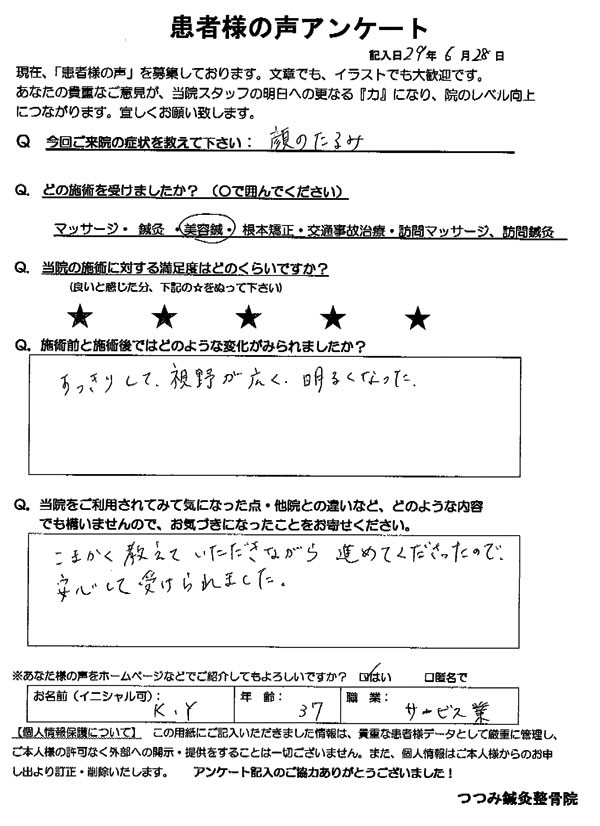 患者様の声アンケート
記入日29年6月28日
現在、「患者様の声」を募集しております。文章でも、イラストでも大歓迎です。
あなたの貴重なご意見が、当院スタッフの明日への更なる『力』になり、院のレベル向上
につながります。宜しくお願い致します。
Q 今回ご来院の症状を教えて下さい： 顔のたるみ
Q. どの施術を受けましたか？（〇で囲んでください）
マッサージ・ 鍼灸 ・美容鍼・ 根本矯正・交通事故治療・訪問マッサージ、訪問鍼灸
Q. 当院の施術に対する満足度はどのくらいですか？
（良いと感じた分、下記の☆をぬって下さい）
★ ★ ★ ★ ★
Q. 施術前と施術後ではどのような変化がみられましたか？
すっきりして、視野が広く、明るくなった。
Q. 当院をご利用されてみて気になった点・他院との違いなど、どのような内容
でも構いませんので、お気づきになったことをお寄せください。
こまかく教えていただきながら 進めてくださったので、
安心して受けられました。
※あなた様の声をホームページなどでご紹介してもよろしいですか？ ☑はい □匿名で
お名前（イニシャル可）： K.Y 年 齢： 37 職 業： サービス業
【個人情報保護について】 この用紙にご記入いただきました情報は、貴重な患者様データとして厳重に管理し、
ご本人様の許可なく外部への開示・提供をすることは一切ございません。また、個人情報はご本人様からのお申
し出より訂正・削除いたします。 アンケート記入のご協力ありがとうございました！
つつみ鍼灸整骨院